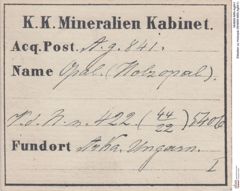 K.K. Mineralien Kabinet.
Acq.Post. A.g. 841.
Name Opal. (Holzopal).
422. (44/22) 5406
Fundort Ungarn.
I